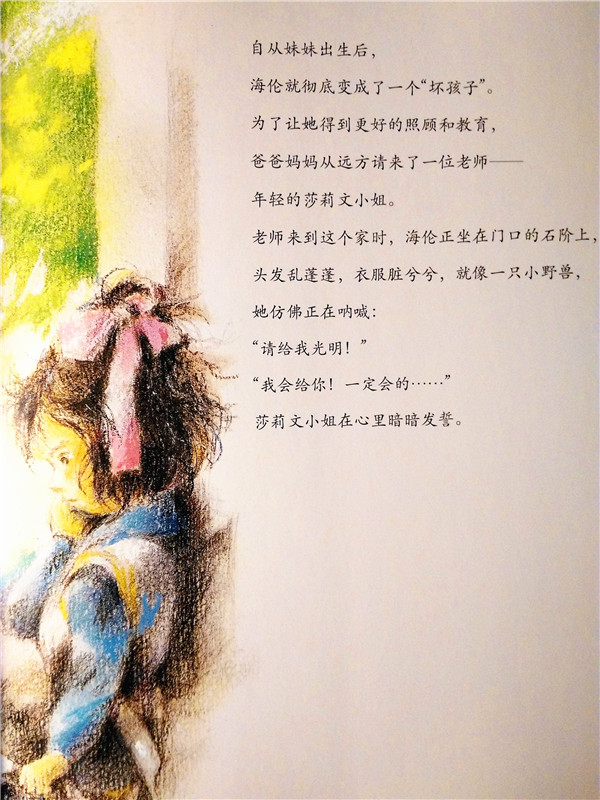 自从妹妹出生后，
海伦就彻底变成了一个“坏孩子”。
为了让她得到更好的照顾和教育，
爸爸妈妈从远方请来了一位老师——
年轻的莎莉文小姐。
老师来到这个家时，海伦正坐在门口的石阶上，
头发乱蓬蓬，衣服脏兮兮，就像一只小野兽，
她仿佛正在呐喊：
“请给我光明！”
“我会给你！一定会的……”
莎莉文小姐在心里暗暗发誓。